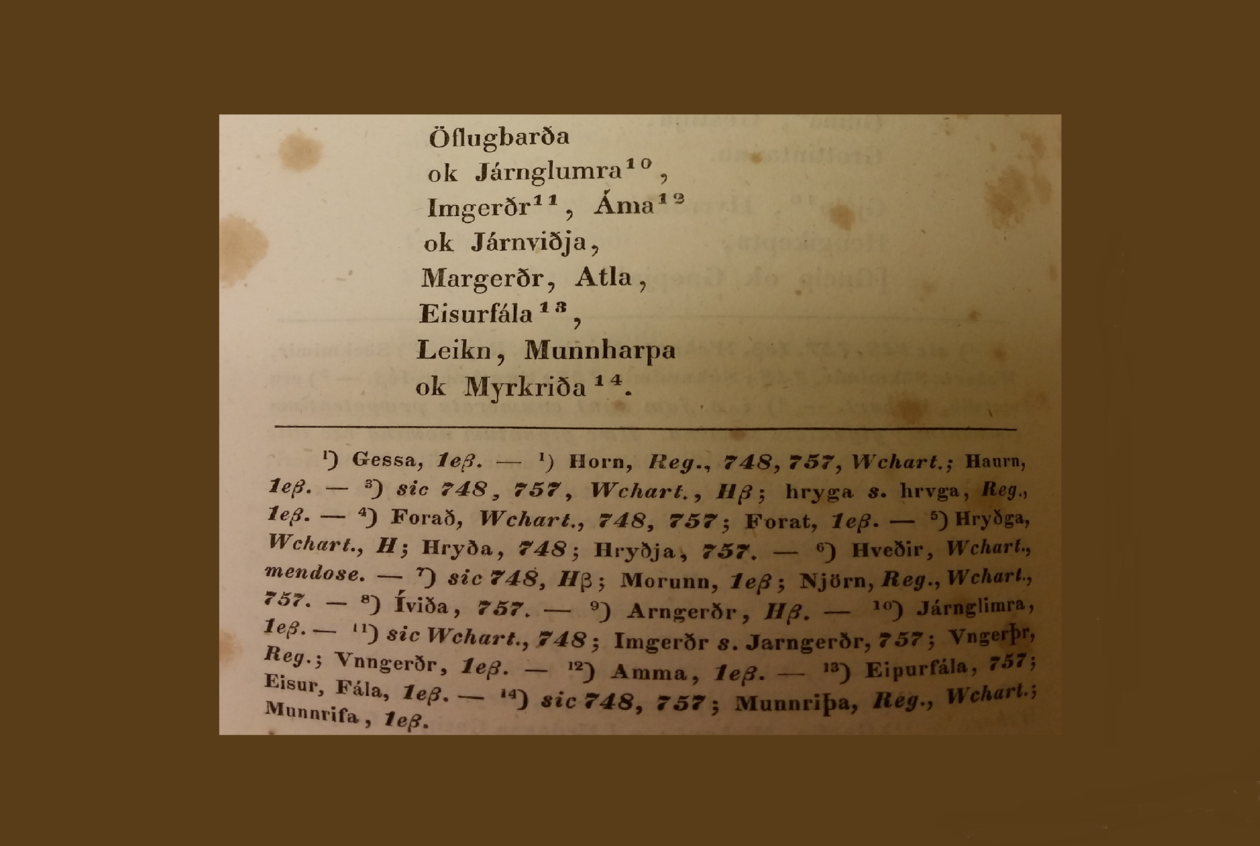 Öflugbarða
ok Járnglumra¹⁰,
Imgerðr¹¹, Áma¹²
ok Járnviðja,
Margerðr, Atla,
Eisurfála¹³,
Leikn, Munnharpa
ok Myrkriða¹⁴.
¹) Gessa, 1eβ. — ¹) Horn, Reg., 748, 757, Wchart.; Haurn,
1eβ. — ³) sic 748, 757, Wchart., Hβ; hryga s. hrvga, Reg.,
1eβ. — ⁴) Forað, Wchart., 748, 757; Forat, 1eβ. — ⁵) Hryðga,
Wchart., H; Hryða, 748; Hryðja, 757. — ⁶) Hveðir, Wchart.,
mendose. — ⁷) sic 748, Hβ; Morunn, 1eβ; Njörn, Reg., Wchart.,
757. — ⁸) Íviða, 757. — ⁹) Arngerðr, Hβ. — ¹⁰) Járnglimra,
1eβ. — ¹¹) sic Wchart., 748; Imgerðr s. Jarngerðr, 757; Vngerþr,
Reg.; Vnngerðr, 1eβ. — ¹²) Amma, 1eβ. — ¹³) Eipurfála, 757;
Eisur, Fála, 1eβ. — ¹⁴) sic 748, 757; Munnriþa, Reg., Wchart.;
Munnrifa, 1eβ.